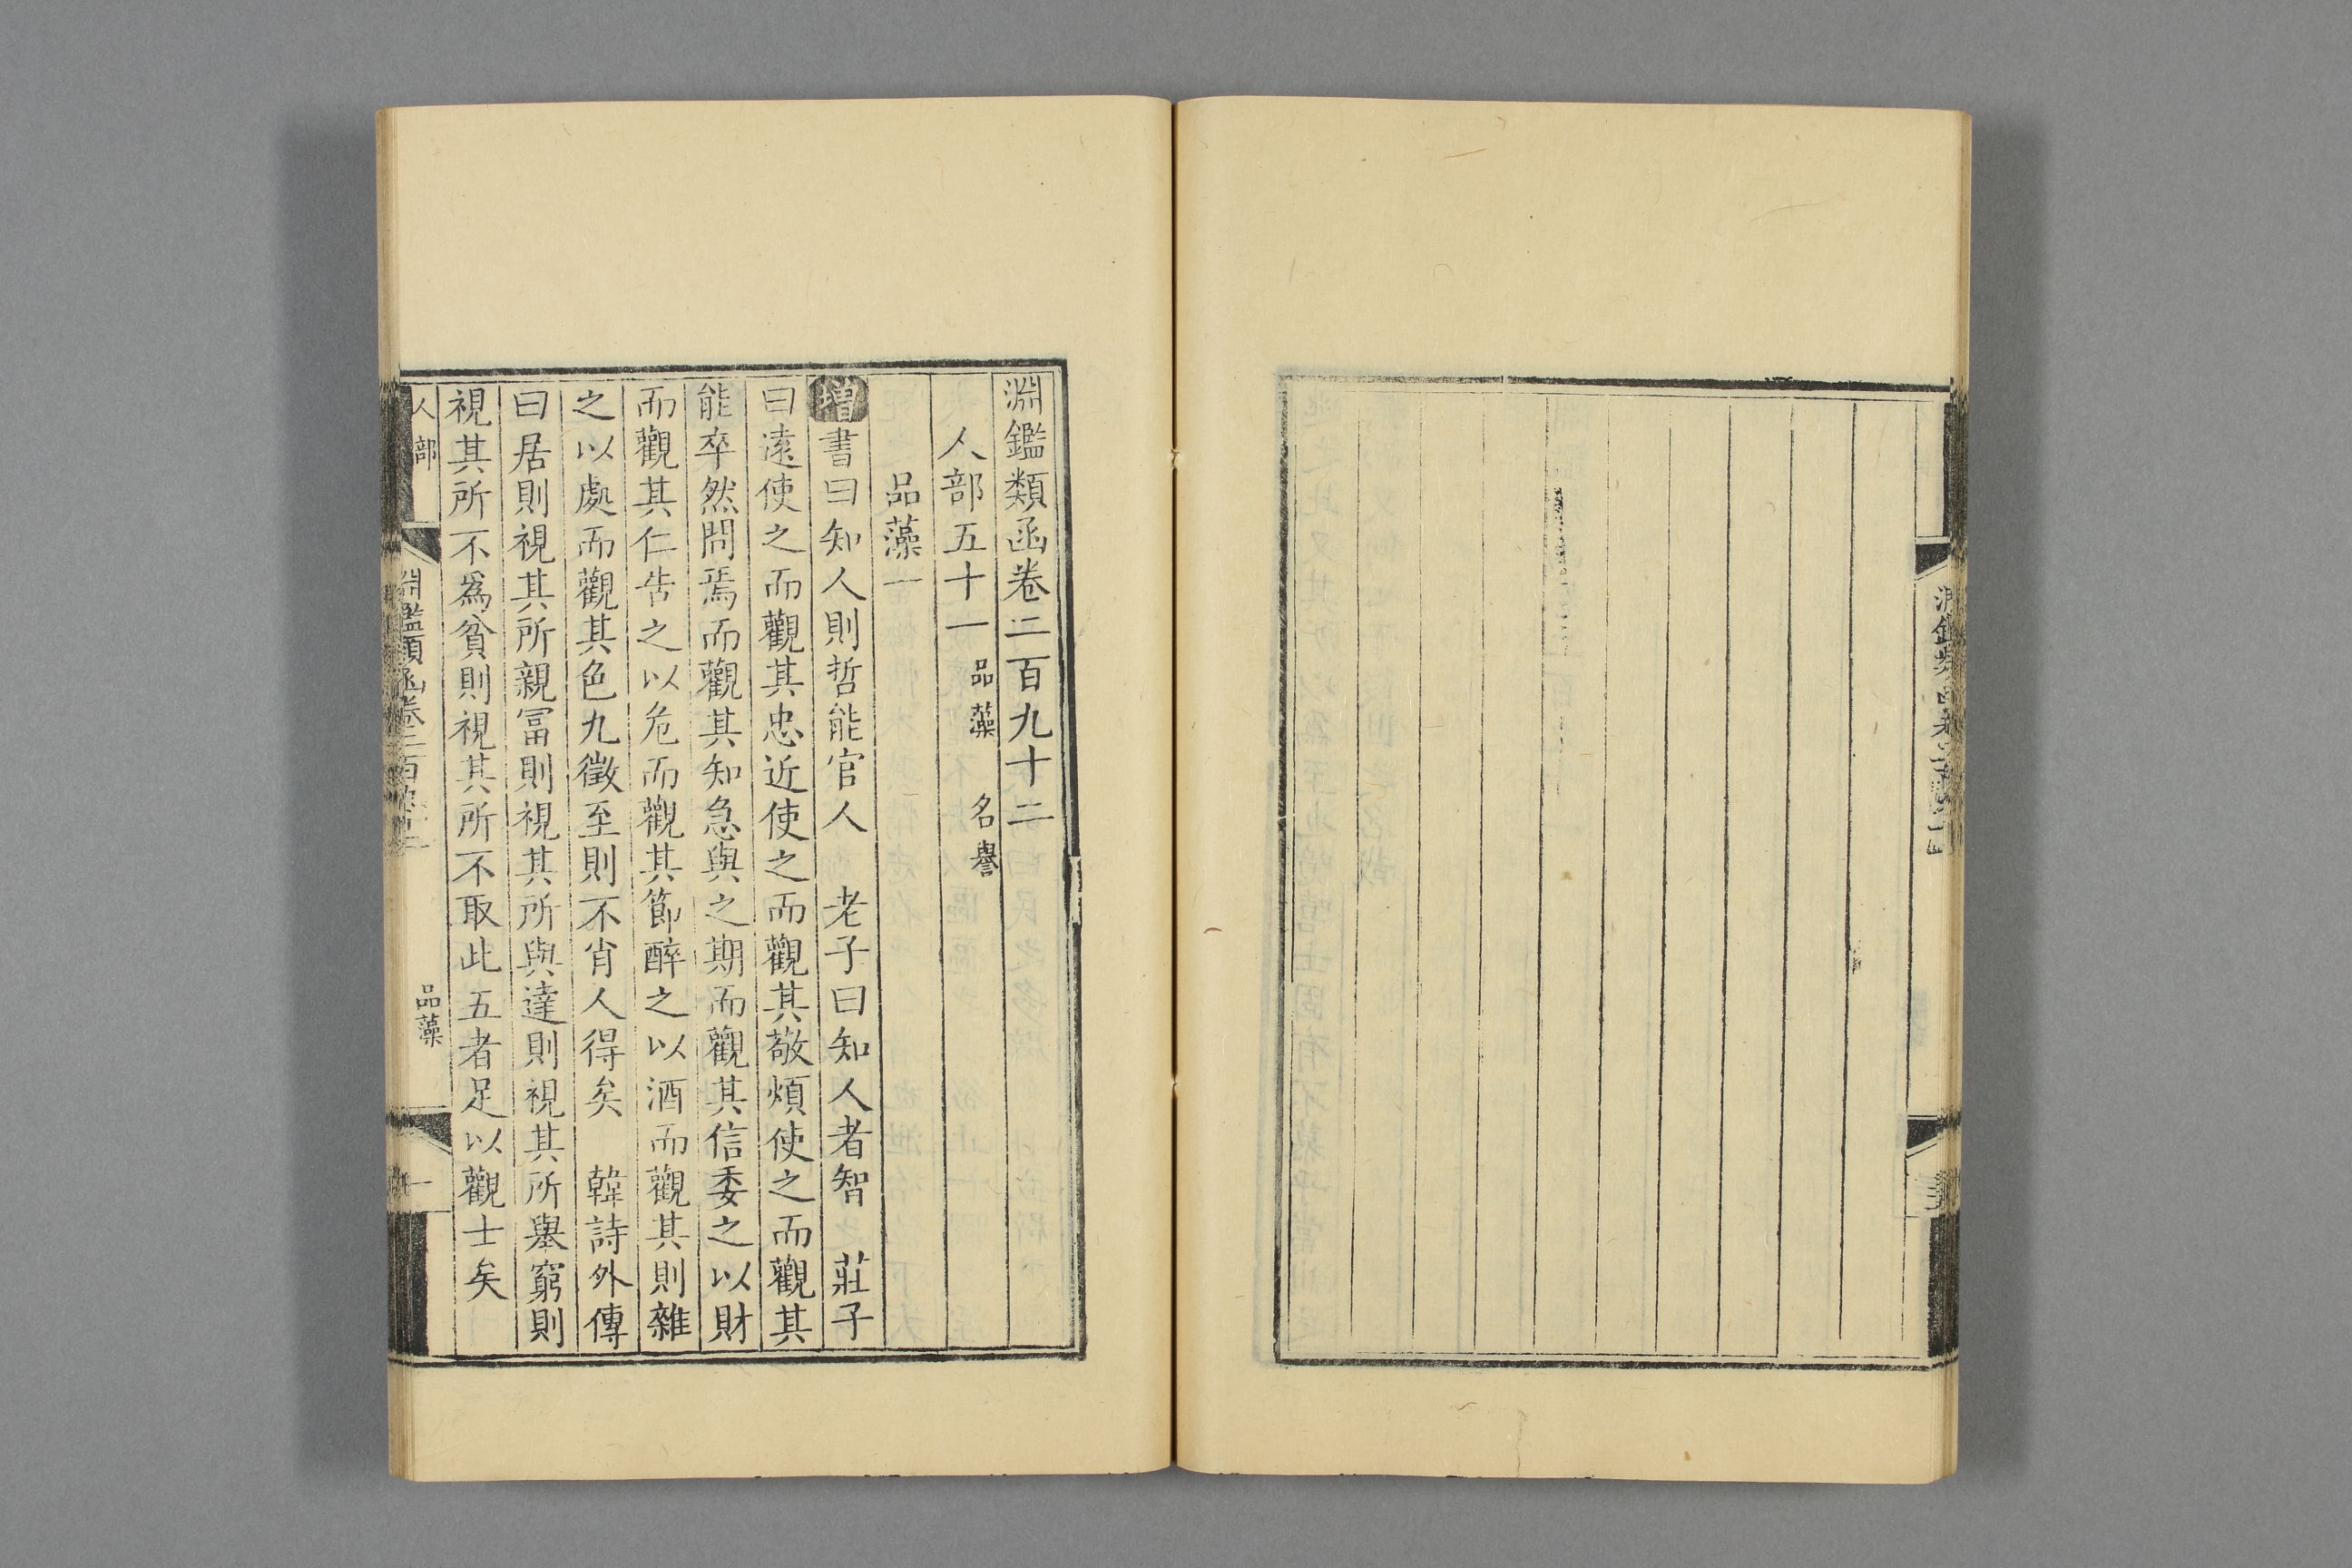 淵鑑類函卷二百九十二
人部五十一 品藻 名譽
品藻一
增書曰知人則哲能官人 老子曰知人者智 莊子
曰遠使之而觀其忠近使之而觀其敬煩使之而觀其
能卒然問焉而觀其知急與之期而觀其信委之以財
而觀其仁告之以危而觀其節醉之以酒而觀其則雜
之以處而觀其色九徵至則不肖人得矣 韓詩外傳
曰居則視其所親富則視其所與達則視其所舉窮則
視其所不為貧則視其所不取此五者足以觀士矣
人部 淵鑑類函卷二百九十二 品藻 一